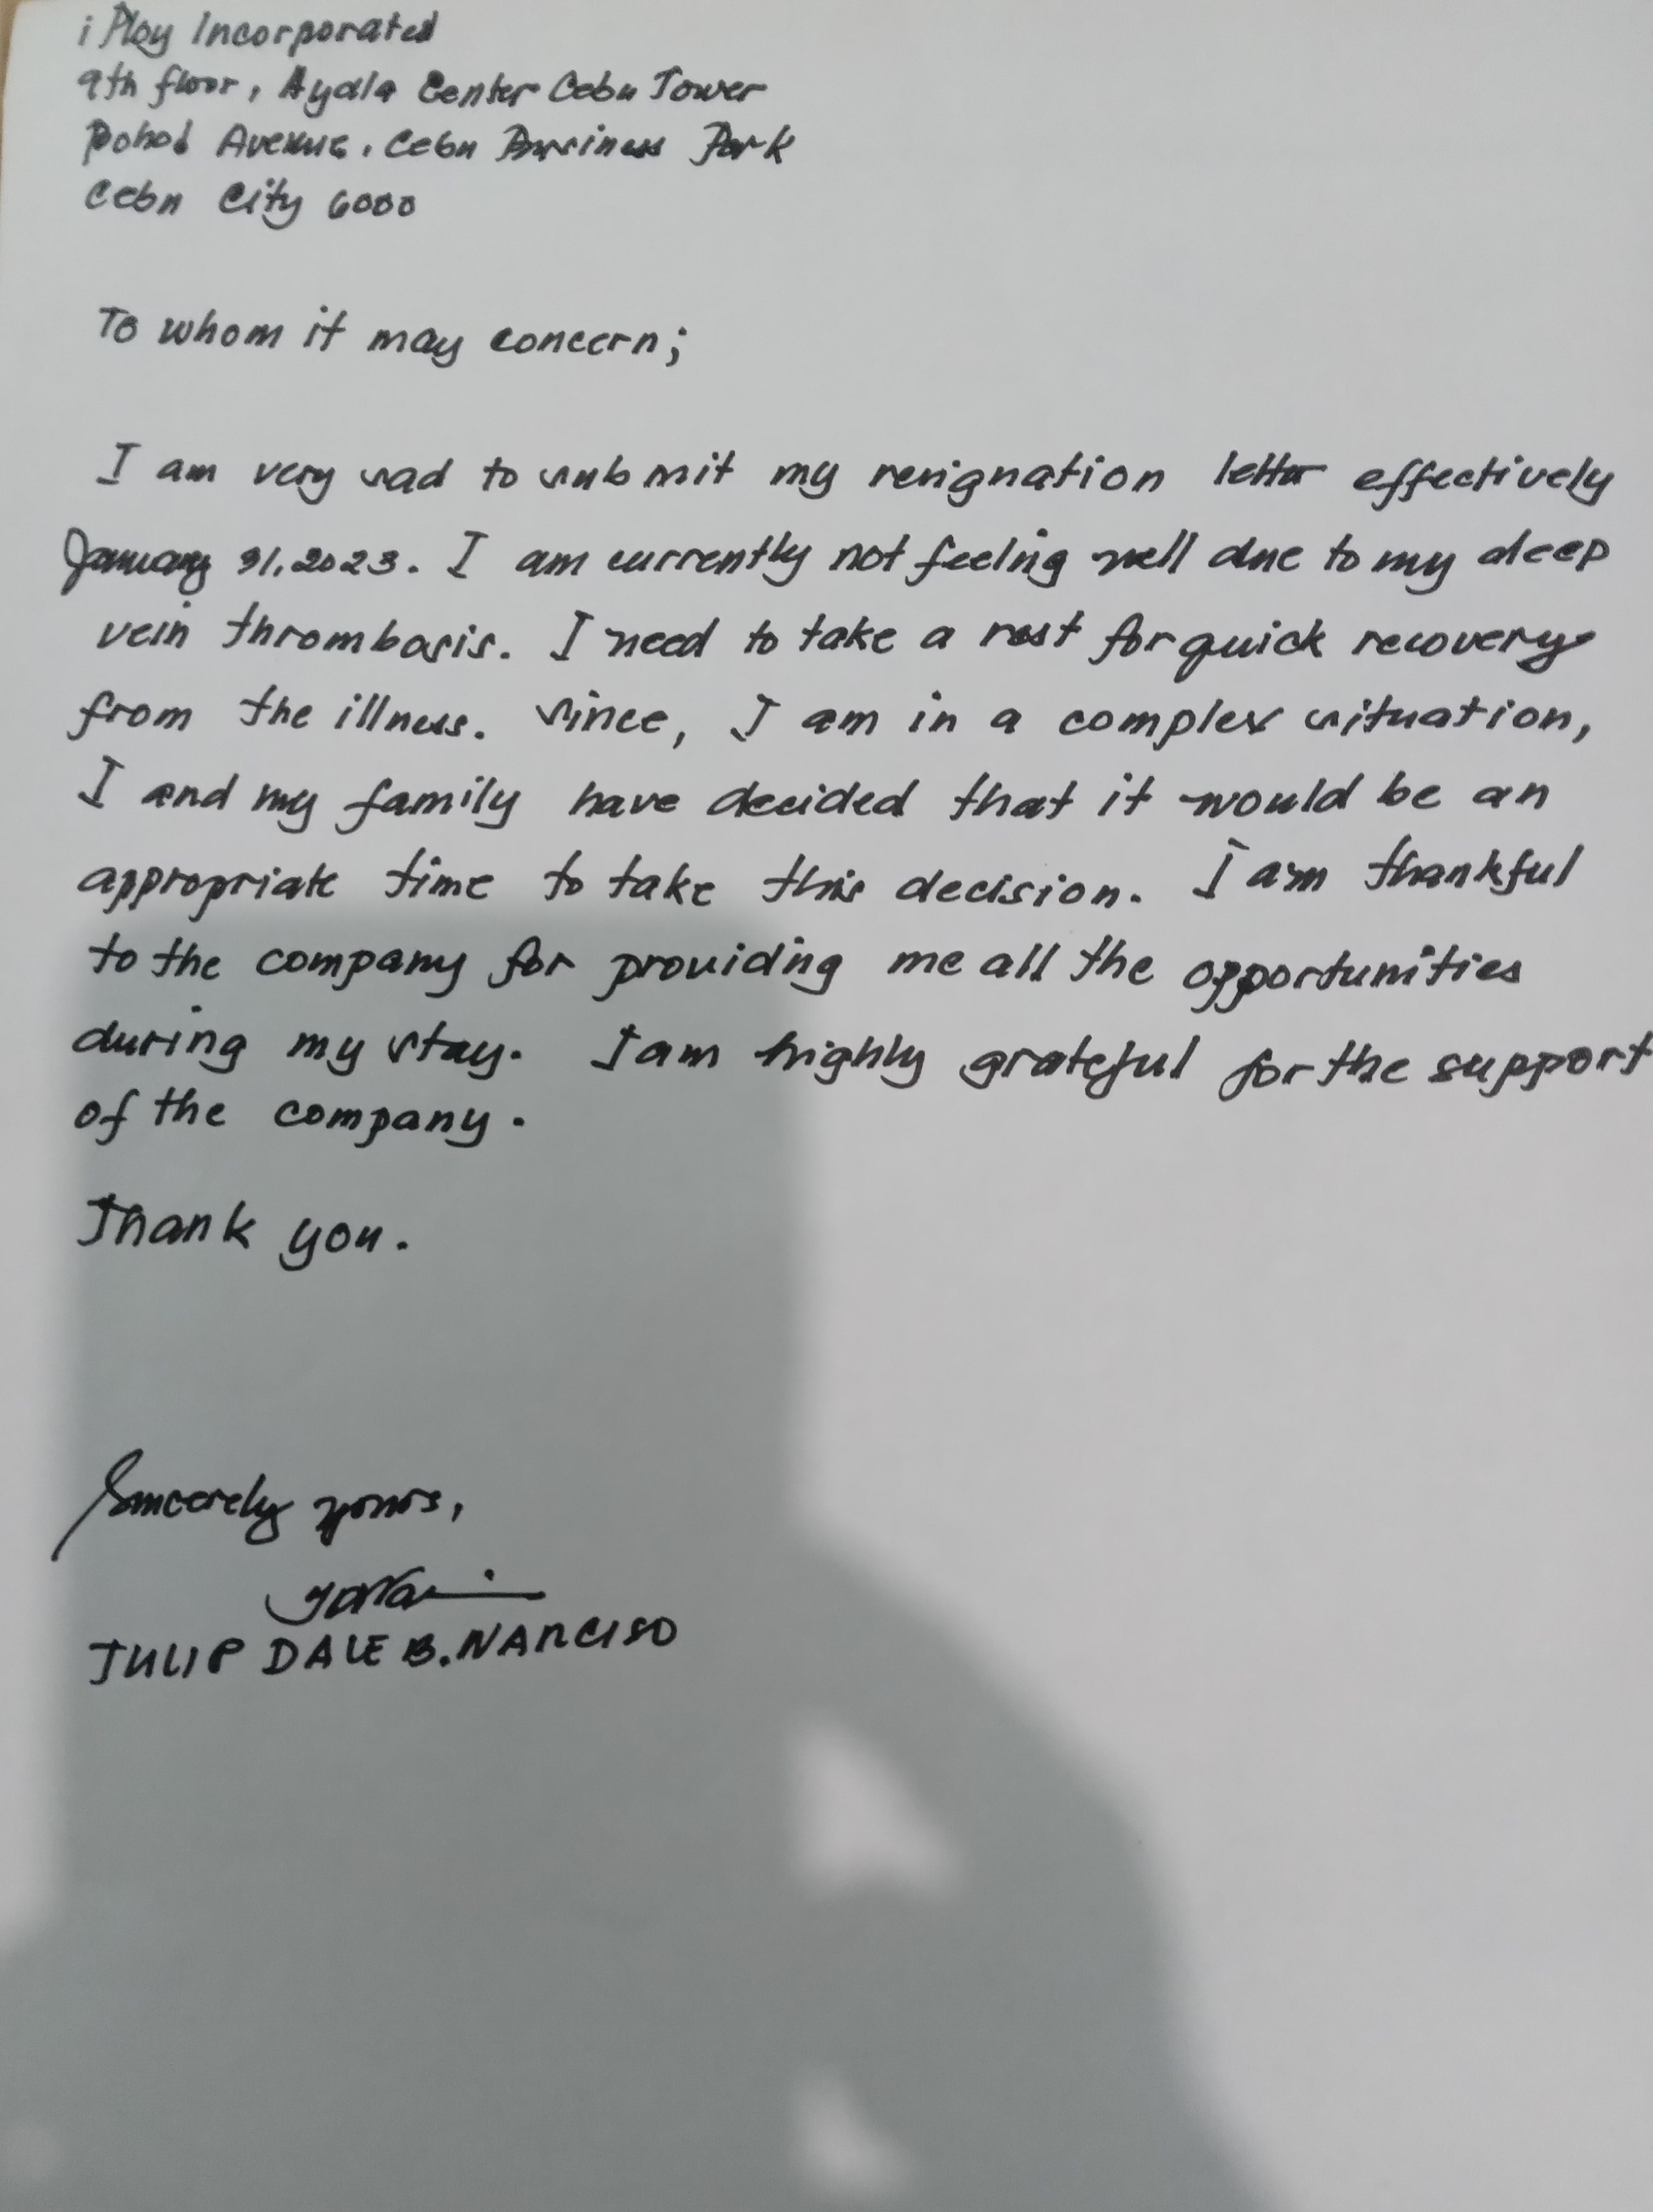 iPloy Incorporated
9th floor, Ayala Center Cebu Tower
Bohol Avenue, Cebu Business Park
Cebu City 6000
To whom it may concern;
I am very sad to submit my resignation letter effectively
January 31, 2023. I am currently not feeling well due to my deep
vein thrombosis. I need to take a rest for quick recovery
from the illness. Since, I am in a complex situation,
I and my family have decided that it would be an
appropriate time to take this decision. I am thankful
to the company for providing me all the opportunities
during my stay. I am highly grateful for the support
of the company.
Thank you.
Sincerely yours,
JULIP DALE B. NARCISO